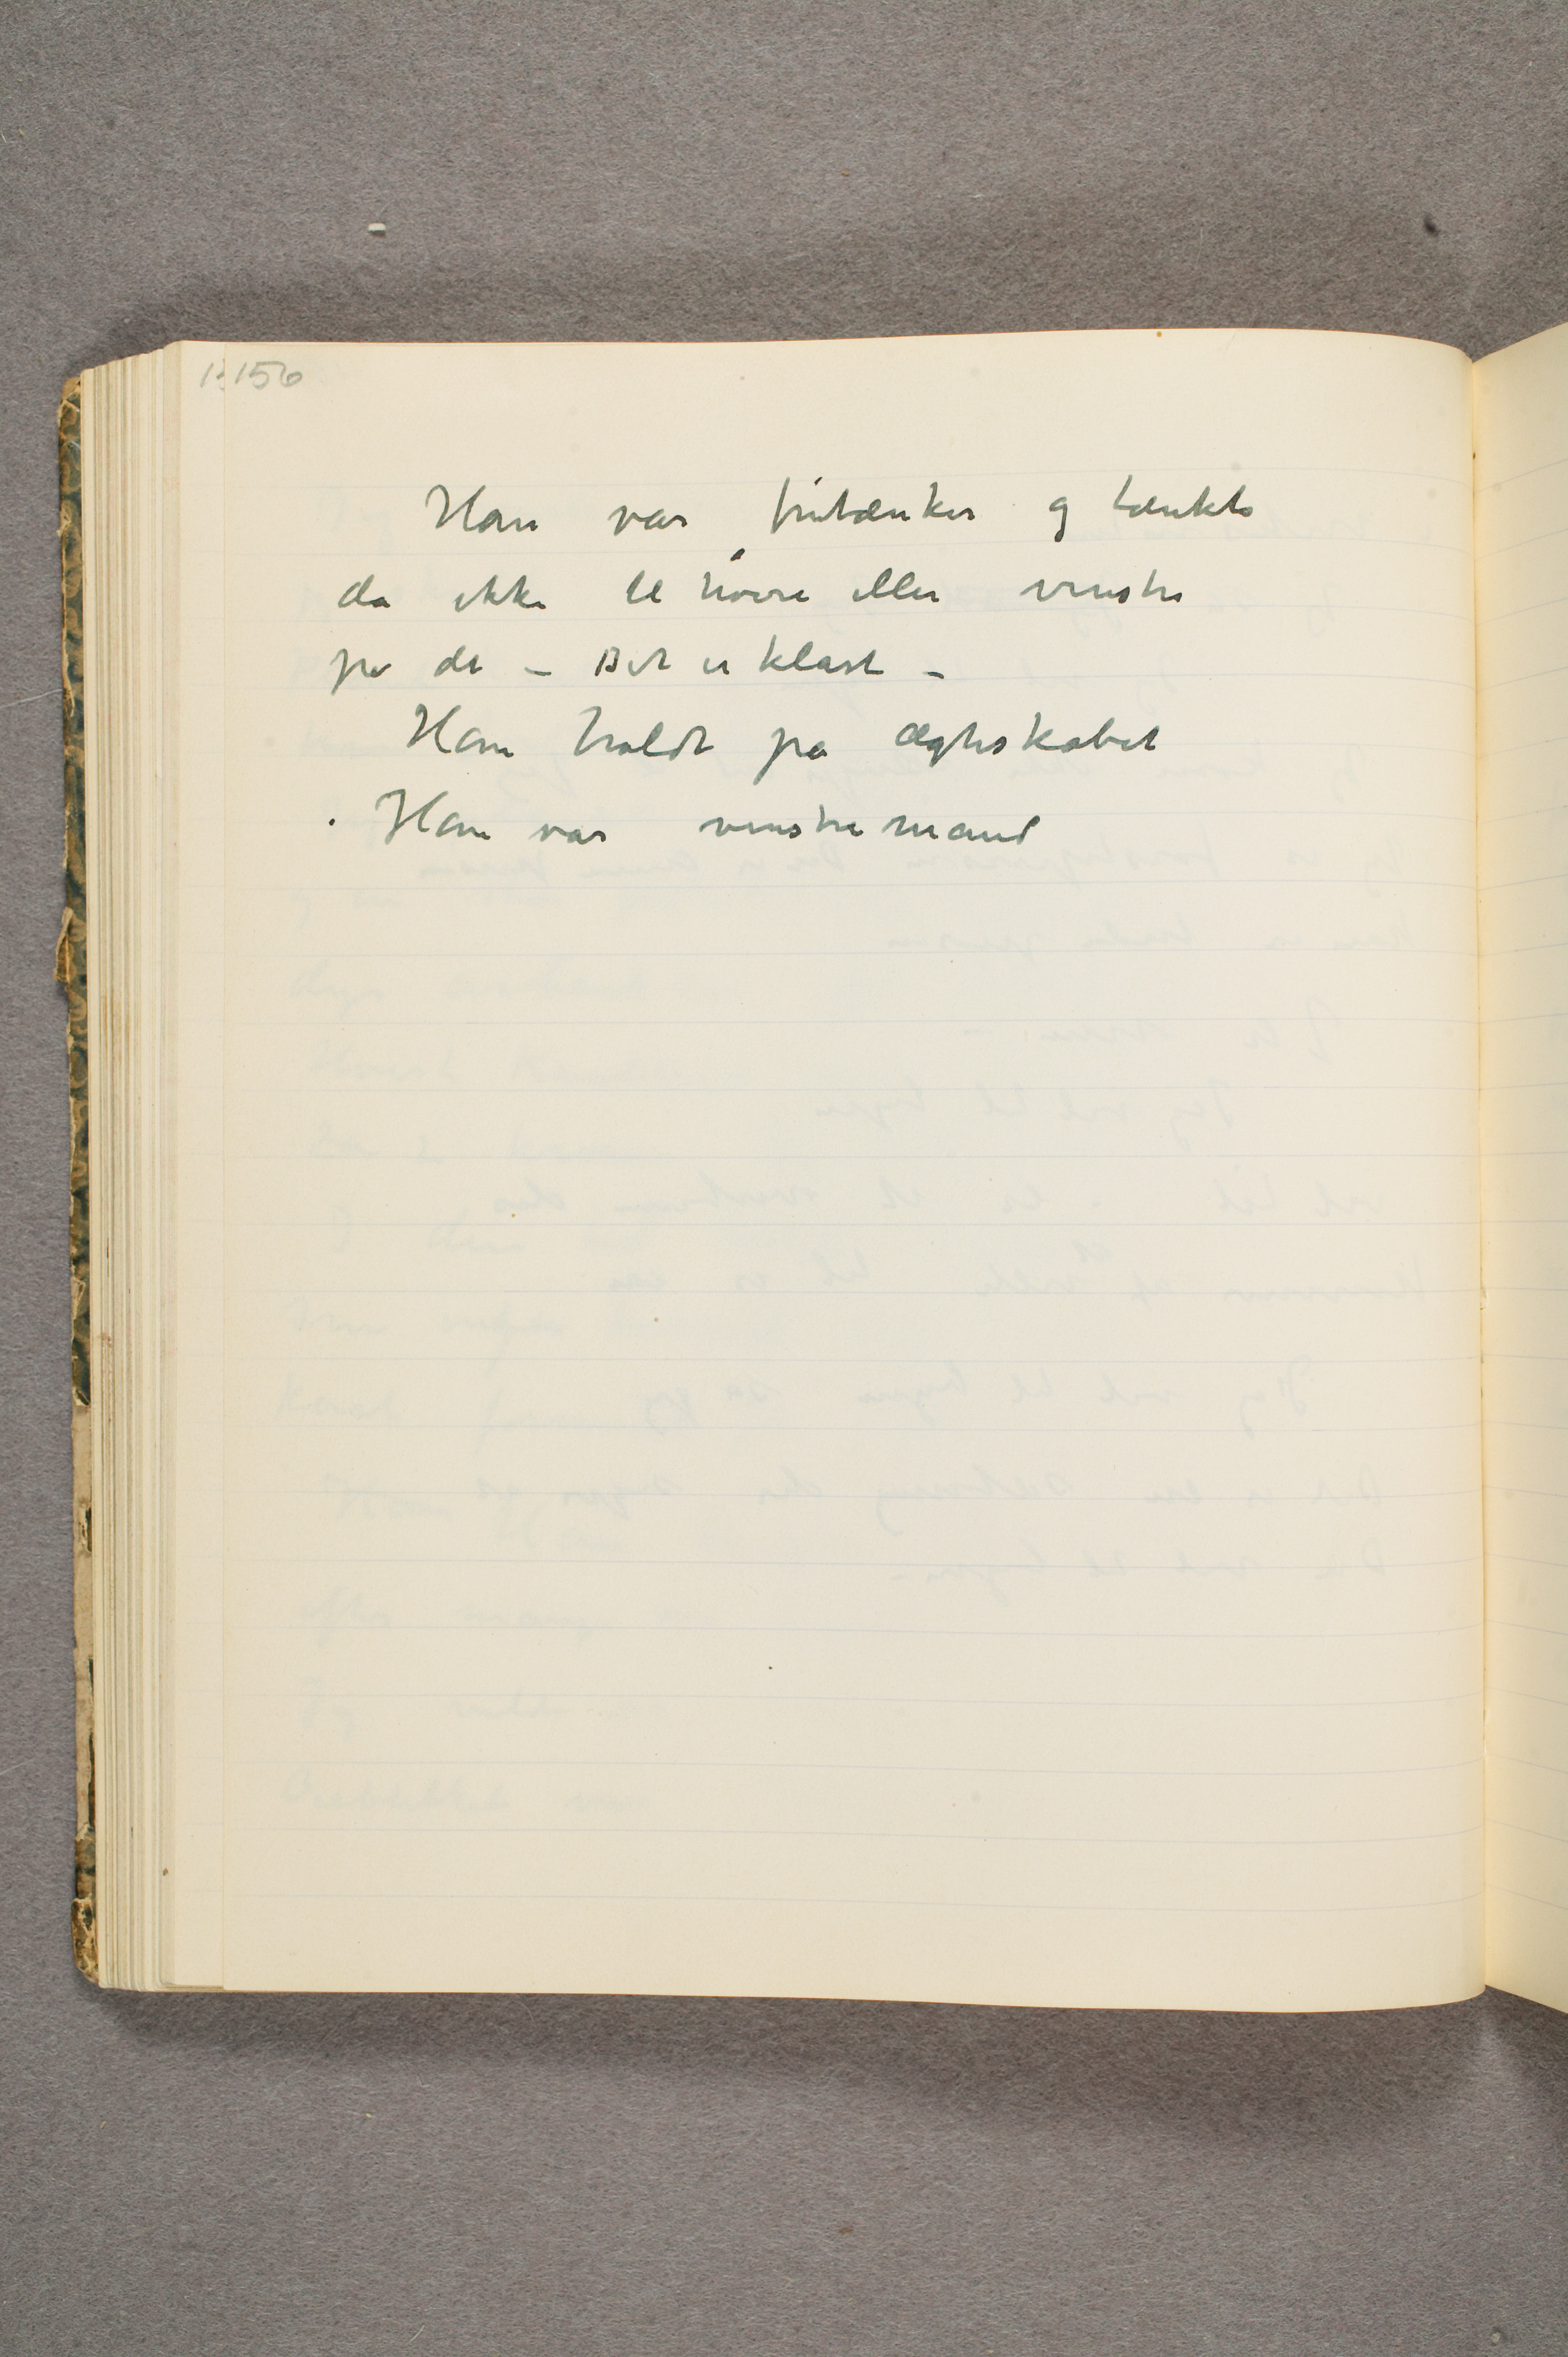 156
Han var fritænker og tænkte
da ikke til høire eller venstre
på det – Det er klart –
Han holdt på ægteskabet
. Han var venstremand